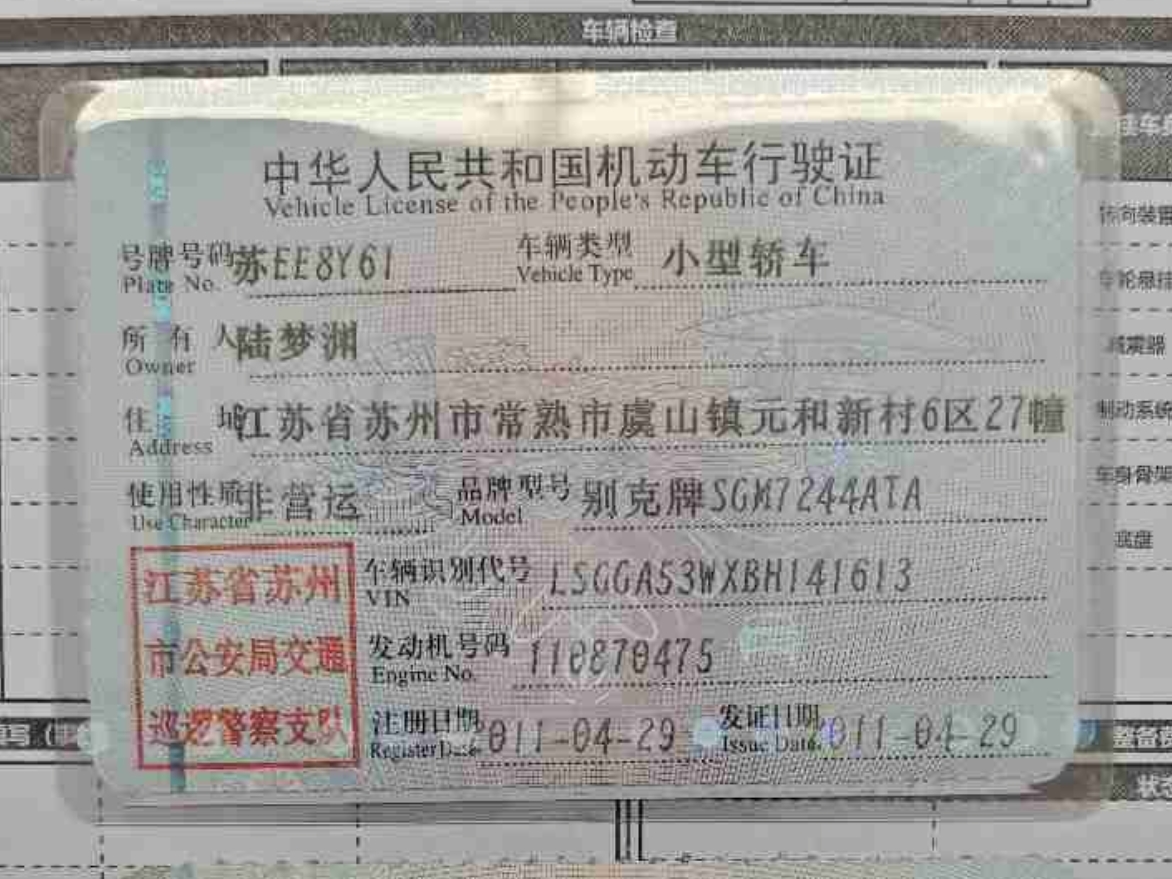 车辆检查
中华人民共和国机动车行驶证
Vehicle License of the People's Republic of China
号牌号码 苏EE8Y61 车辆类型 小型轿车
Plate No. Vehicle Type
所有人 陆梦渊
Owner
住址 江苏省苏州市常熟市虞山镇元和新村6区27幢
Address
使用性质 非营运 品牌型号 别克牌SGM7244ATA
Use Character Model
江苏省苏州
市公安局交通
巡逻警察支队
车辆识别代号 LSGGA53WXBH141613
VIN
发动机号码 110870475
Engine No.
注册日期 011-04-29 发证日期 011-04-29
Register Date Issue Date
转向装置
车轮悬挂
减震器
制动系统
车身骨架
底盘